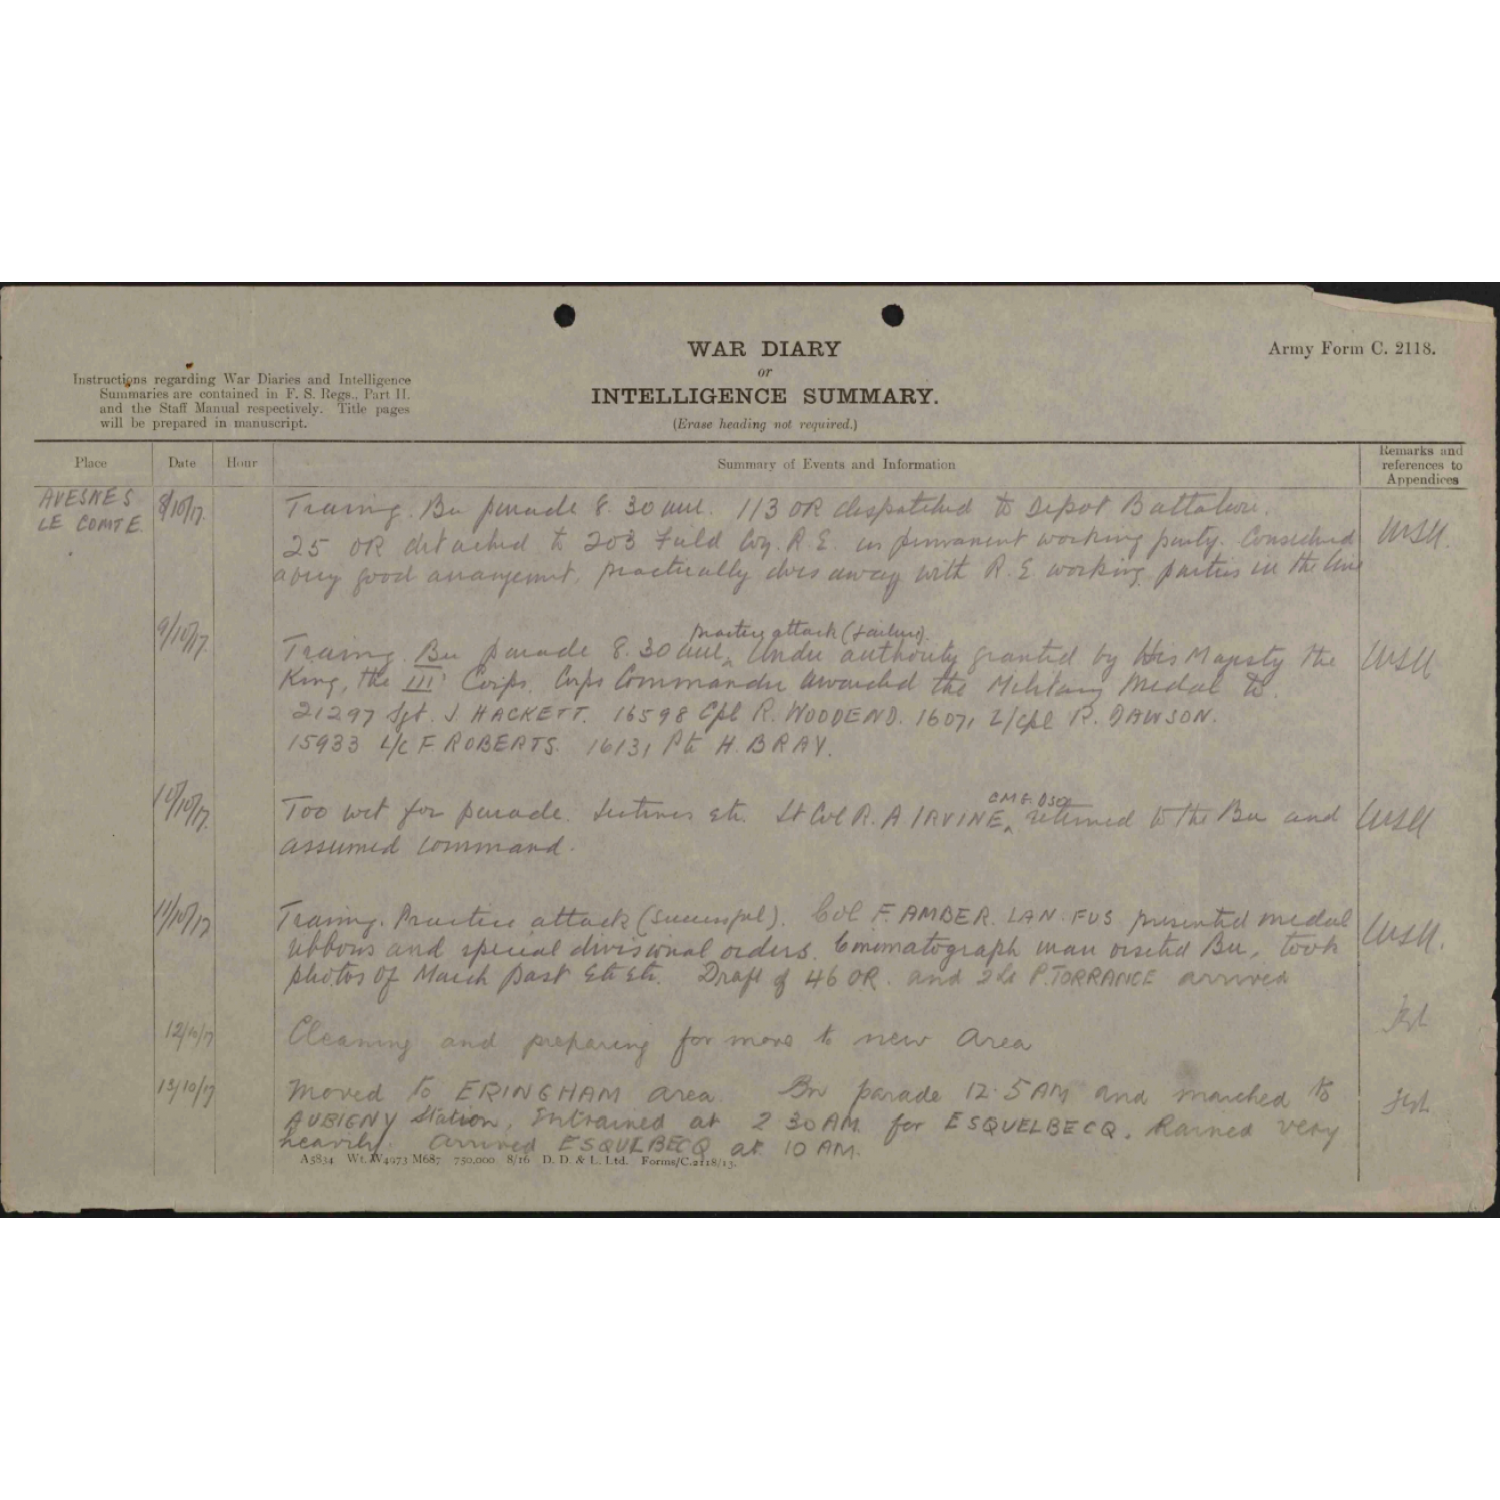 WAR DIARY
or
INTELLIGENCE SUMMARY.
(Erase heading not required.)
Army Form C. 2118.
Instructions regarding War Diaries and Intelligence
Summaries are contained in F. S. Regs., Part II.
and the Staff Manual respectively. Title pages
will be prepared in manuscript.
Place Date Hour Summary of Events and Information Remarks and references to Appendices
AVESNES LE COMTE. 8/10/17. Training. Bn parade 8.30 am. 113 OR dispatched to Depot Battalion.
25 OR detached to 203 Field Coy. R.E. as permanent working party. Considered
a very good arrangement, practically does away with R.E working parties in the line
practice attack (failure).
9/10/17. Training. Bn parade 8.30 am, Under authority granted by His Majesty the
King, the III Corps. Corps Commander awarded the Military Medal to.
21297 Sgt. J HACKETT. 16598 Cpl R. WOODEND. 16071 L/cpl R. DAWSON.
15933 L/c F ROBERTS. 16131 Pte H. BRAY.
CMG. DSO
10/10/17. Too wet for parade. Lectures etc. Lt Col R. A IRVINE, returned to the Bn and
assumed command.
11/10/17 Training. Practice attack (successful). Col F. AMBER. LAN. FUS presented medal
ribbons and special divisional orders. Cinematograph man visited Bn, took
photos of March past etc etc. Draft of 46 OR. and 2Lt P. TORRANCE arrived
12/10/17 Cleaning and preparing for move to new area
13/10/17 Moved to ERINGHAM area. Bn parade 12.5 AM and marched to
AUBIGNY Station, Entrained at 2 30 AM for ESQUELBECQ. Rained very
heavily. arrived ESQULBECQ at 10 AM.
A5834 Wt. W4973 M687 750,000 8/16 D. D. & L. Ltd. Forms/C.2118/13.